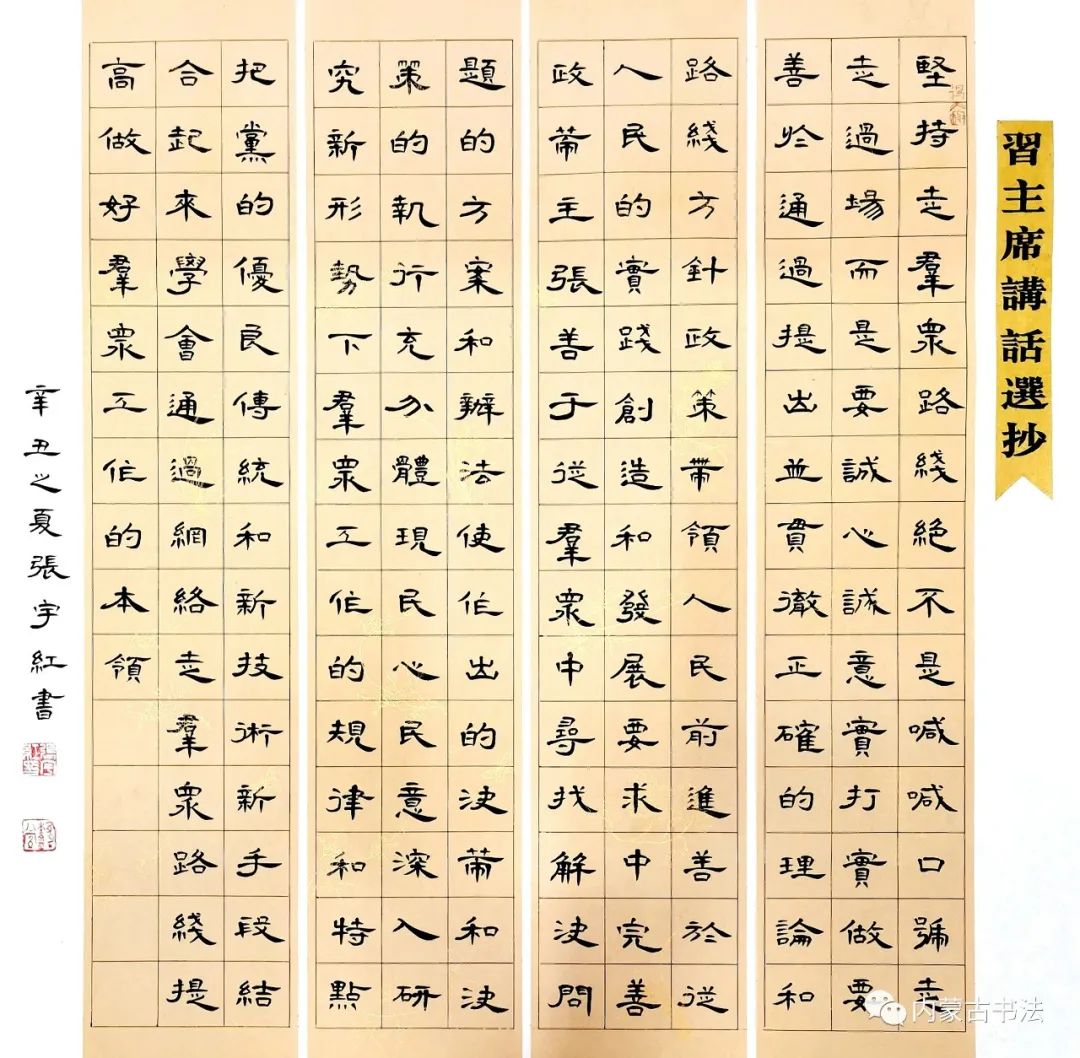 習主席講話選抄
堅持走羣衆路綫絕不是喊喊口號走
走過場而是要誠心誠意實打實做要
善於通過提出並貫徹正確的理論和
路綫方針政策帶領人民前進善於從
人民的實踐創造和發展要求中完善
政策主張善于從羣衆中尋找解決問
題的方案和辦法使作出的決策和決
策的執行充分體現民心民意深入研
究新形勢下羣衆工作的規律和特點
把黨的優良傳統和新技術新手段結
合起來學會通過網絡走羣衆路綫提
高做好羣衆工作的本領
辛丑之夏張宇紅書
内蒙古书法